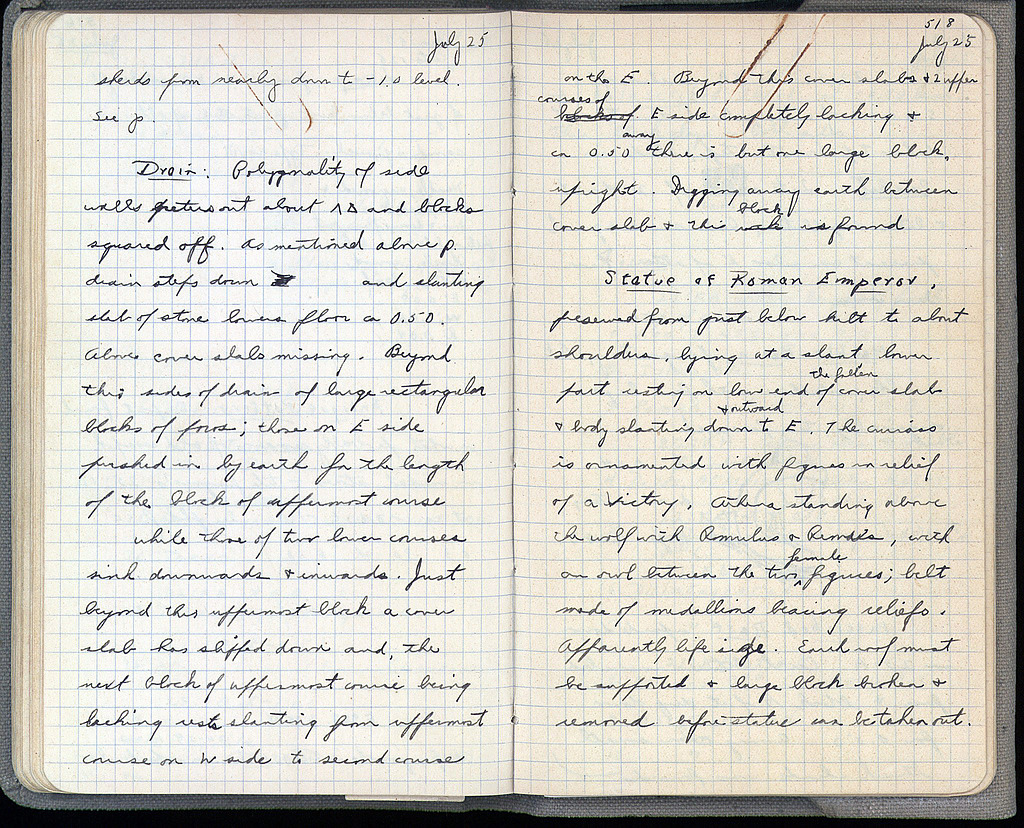 July 25
sherds from nearby down to -1.0 level.
See p.
Drain: Polygonality of side
walls peters out about ΛΔ and blocks
squared off. As mentioned above p.
drain steps down and slanting
slab of stone lowers floor ca 0.50.
Above cover slabs missing. Beyond
this sides of drain of large rectangular
blocks of poros; those on E side
pushed in by earth for the length
of the block of uppermost course
while those of two lower courses
sink downwards & inwards. Just
beyond this uppermost block a cover
slab has slipped down and, the
next block of uppermost course being
lacking rests slanting from uppermost
course on W side to second course
518
July 25
on the E. Beyond this cover slabs & 2 upper
courses of
blocks of E side completely lacking &
away
ca 0.50 there is but one large block,
upright. Digging away earth between
block
cover slab & this is found
Statue of Roman Emperor,
preserved from just below kilt to about
shoulders, lying at a slant, lower
the fallen
part resting on low end of cover slab
& outward
& body slanting down to E. The cuirass
is ornamented with figures in relief
of a Victory, Athena standing above
the wolf with Romulus & Remus, with
female
an owl between the two figures; belt
made of medallions bearing reliefs.
Apparently life size. Earth roof must
be supported & large block broken &
removed before statue can be taken out.